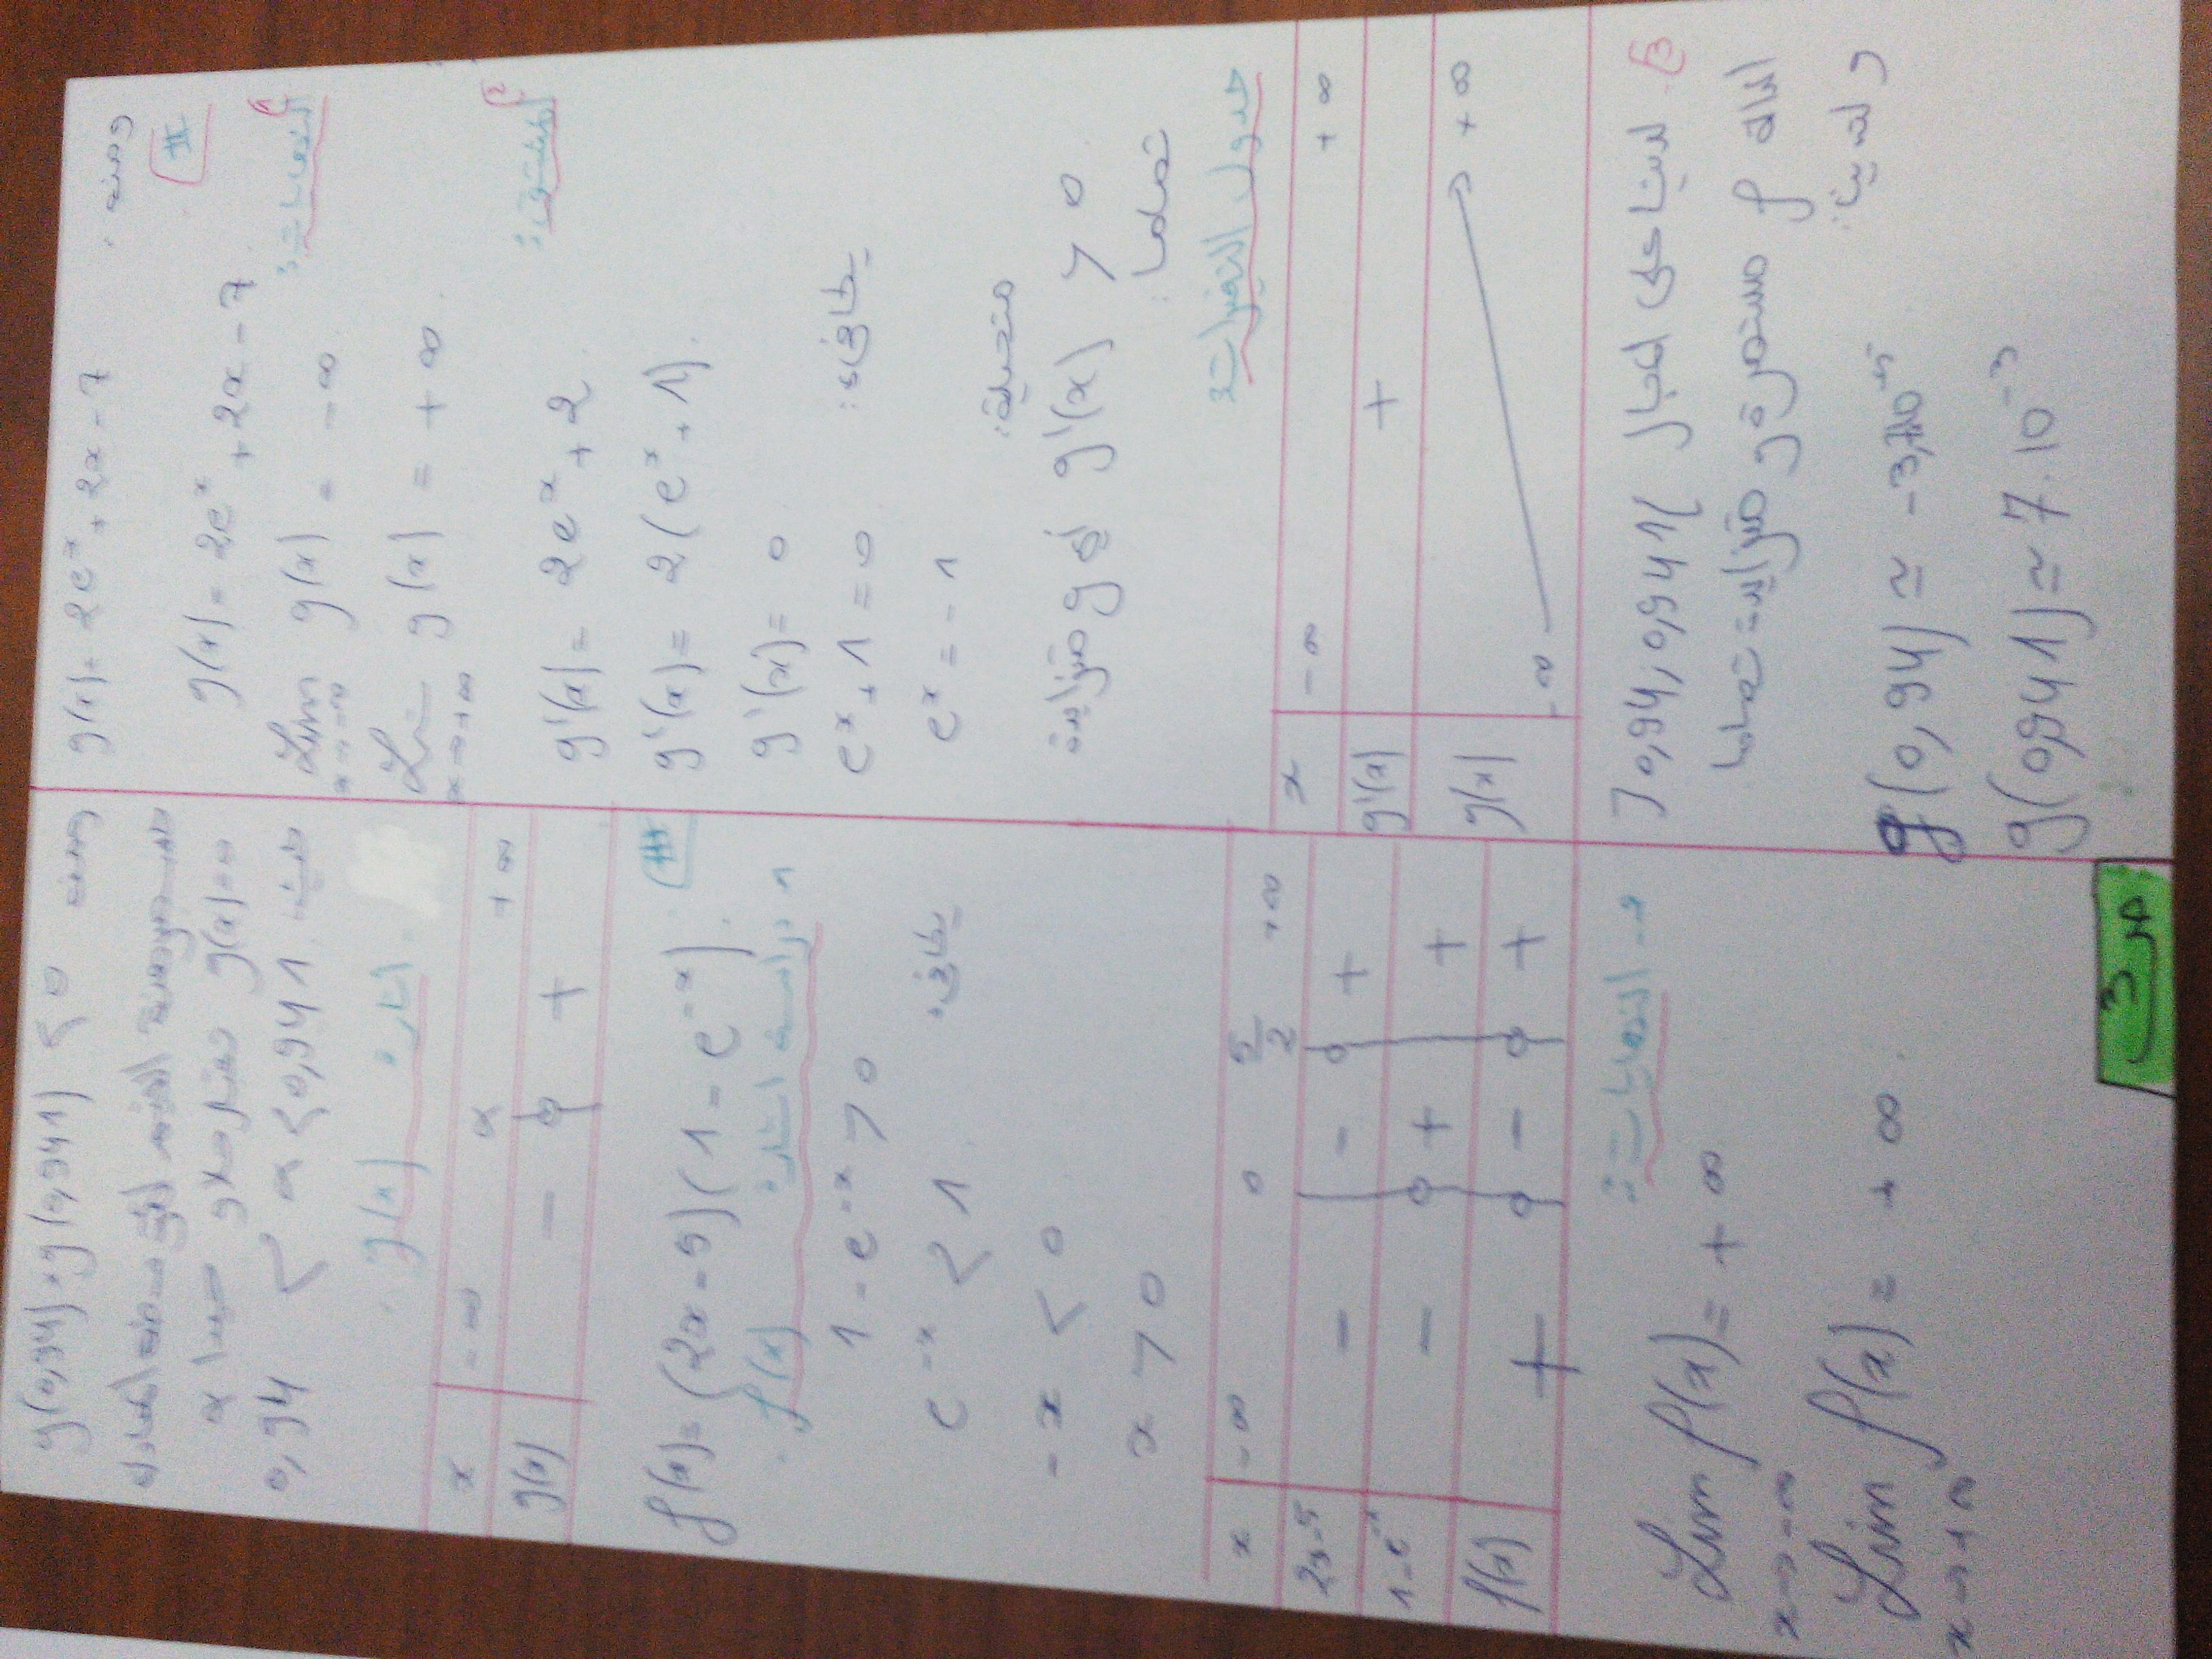 ومنه : g(x) = 2eˣ + 2x - 7
II
g(x) = 2eˣ + 2x - 7
1) النهايات:
Lim g(x) = -∞
x→-∞
Lim g(x) = +∞
x→+∞
2) المشتقة:
g'(x) = 2eˣ + 2
g'(x) = 2(eˣ + 1).
g'(x) = 0
يكافىء: eˣ + 1 = 0
eˣ = -1
مستحيلة:
g'(x) > 0 أي g متزايدة
تماما:
جدول التغيرات:
x -∞ +∞
g'(x) +
g(x) -∞ +∞
3. لدينا على المجال ]0,94; 0,941[
الدالة f مستمرة و متزايدة تماما
و لدينا:
g(0,94) ≃
g(0,941) ≃ 7.10⁻³
ومنه g(0,94) × g(0,941) < 0
حسب مبرهنة القيم المتوسطة المعادلة
g(x)=0 تقبل حلا وحيدا α
حيث 0,94 < α < 0,941
. اشارة g(x) .
x -∞ α +∞
g(x) - 0 +
III
f(x) = (2x - 5)(1 - e⁻ˣ).
1 دراسة اشارة f(x) .
1 - e⁻ˣ > 0
يكافىء e⁻ˣ < 1
-x < 0
x > 0
x -∞ 0 5/2 +∞
2x-5 - - 0 +
1-e⁻ˣ - 0 + +
f(x) + 0 - 0 +
2- النهايات:
Lim f(x) = +∞
x→-∞
Lim f(x) = +∞.
x→+∞
ص 3